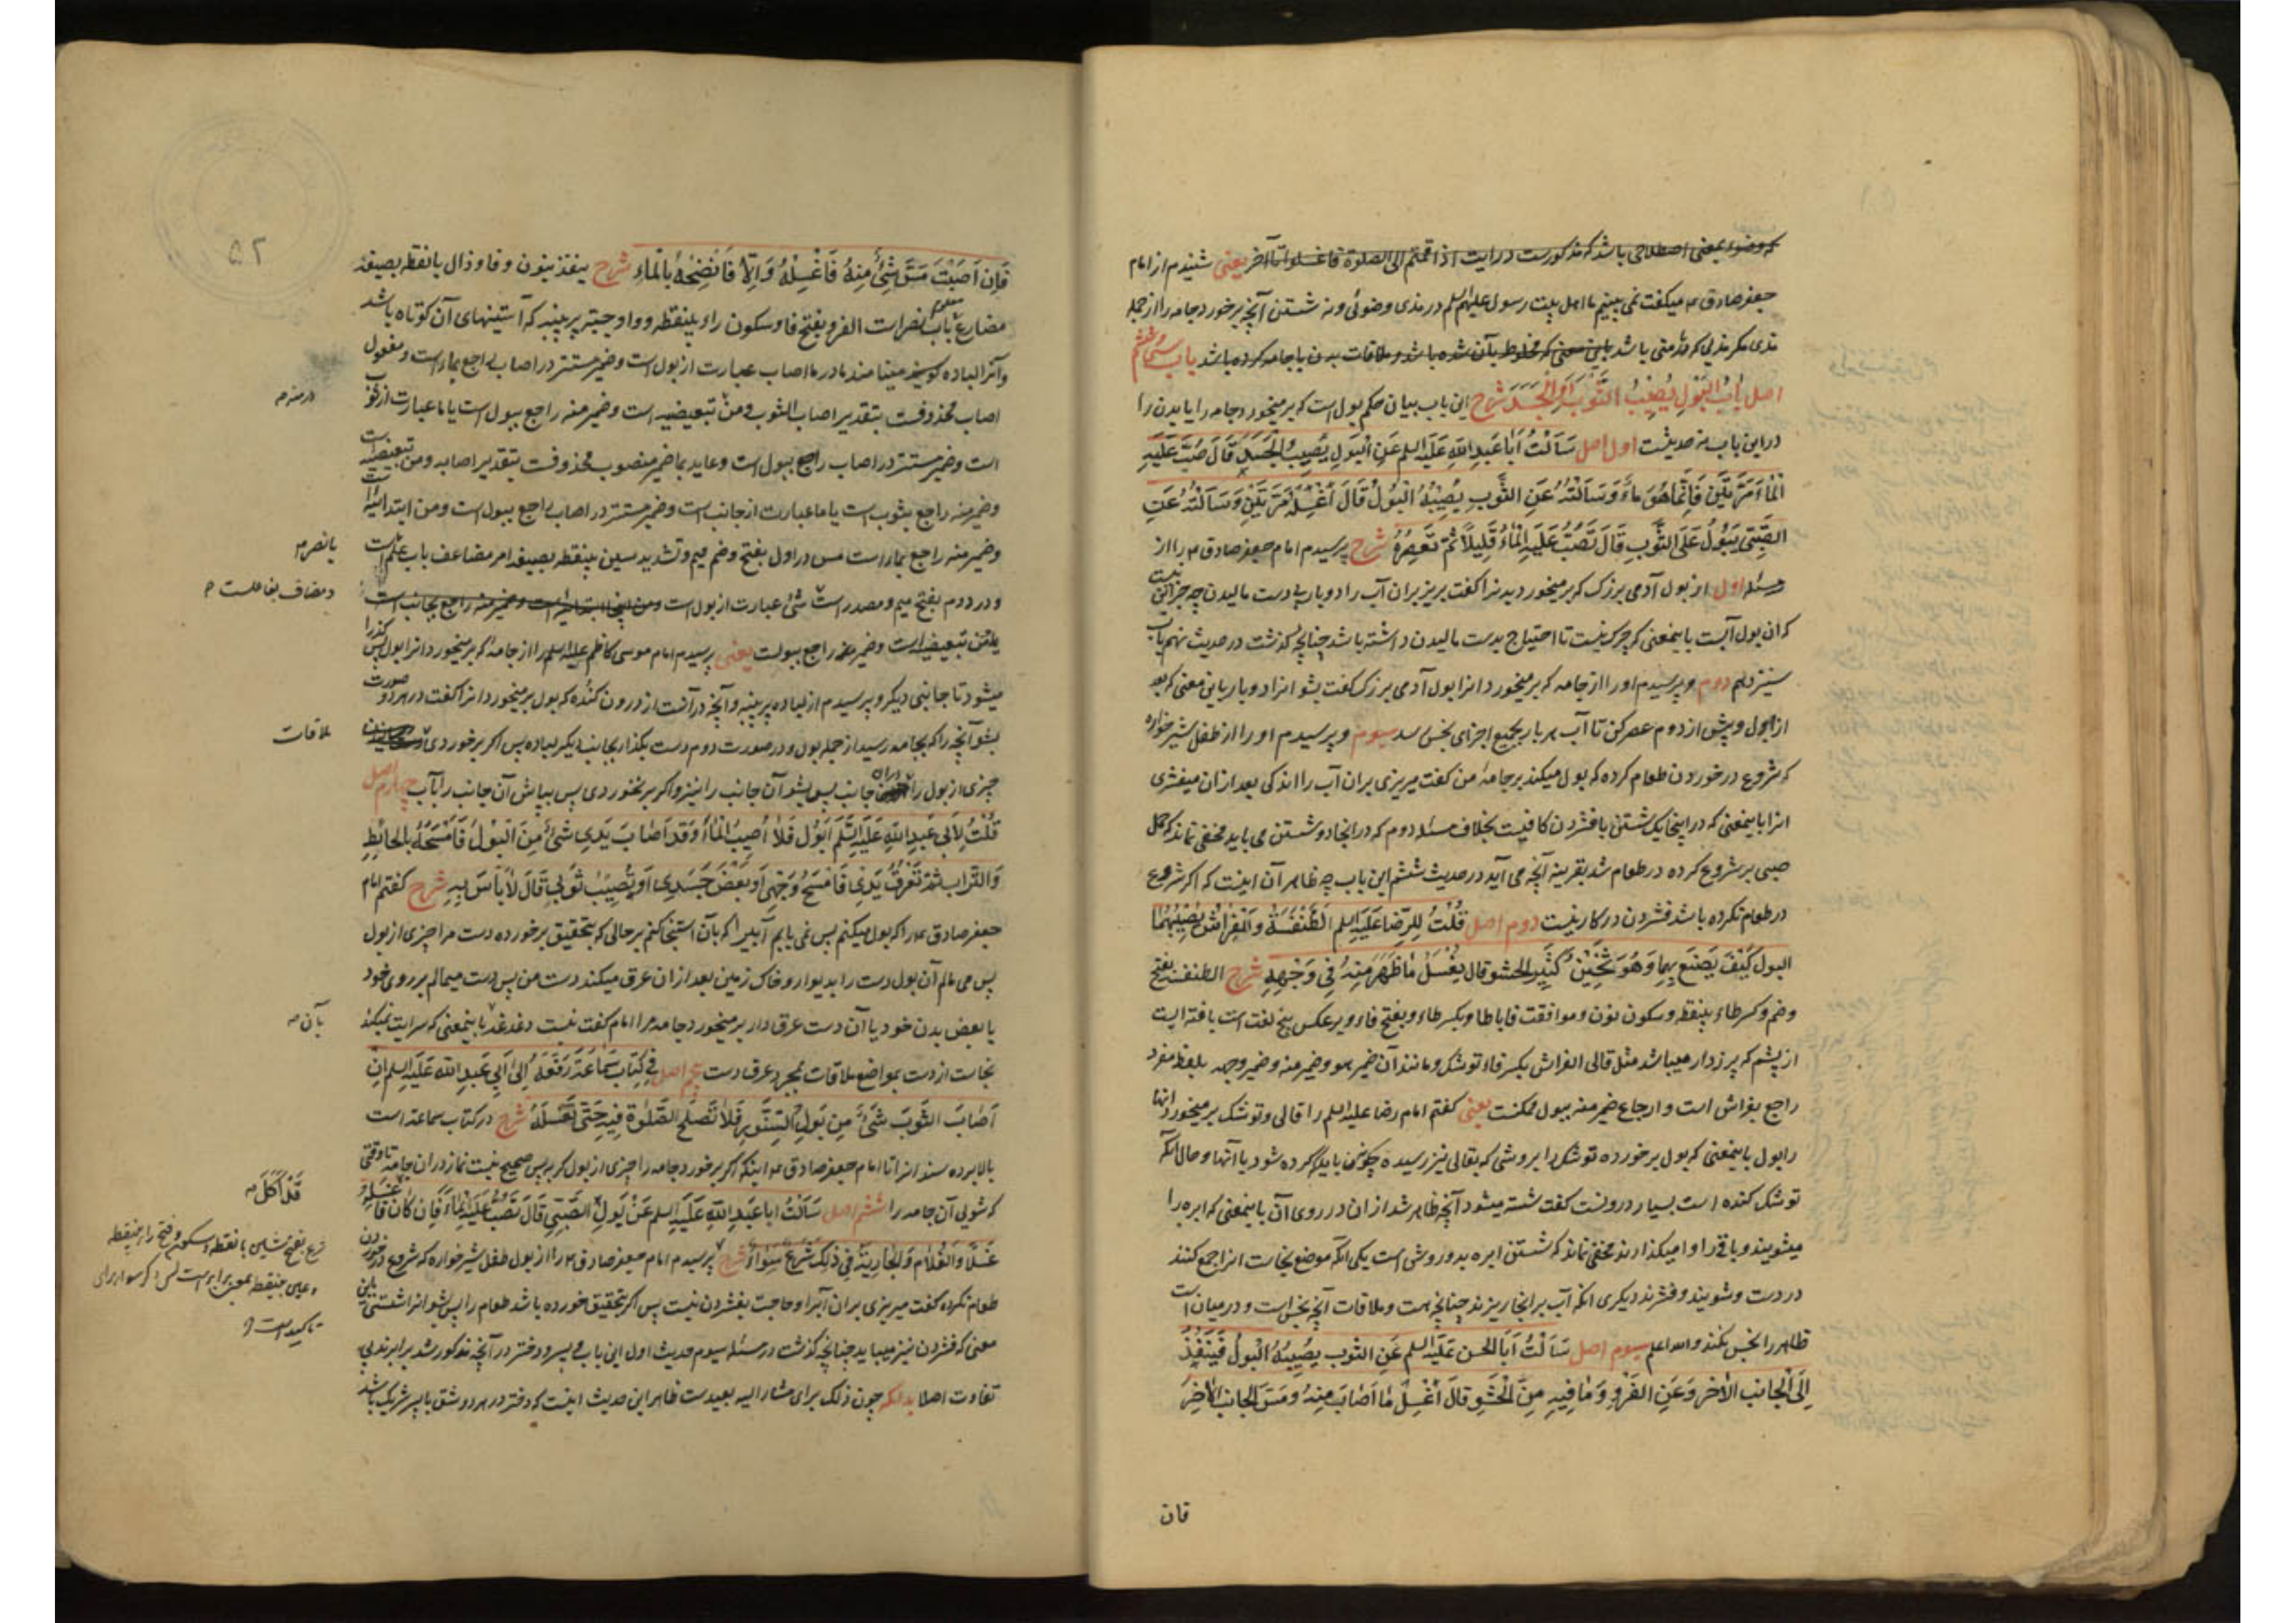 که وضوء بمعنی اصطلاحی باشد که مذکورست در آیت اذا قمتم الی الصلوة فاغسلوا تا آخر یعنی شنیدم از امام
جعفر صادق ع م میکفت نمی بینیم ما اهل بیت رسول علیهم السلم در مذی وضوئی و نه شستن آنچه برخورد جامه را از جمله
مذی مکر مذی که منی باشد باین معنی که مخلوط بآن شده باشد و ملاقات بدن یا جامه کرده باشد باب
اصل بَابُ البَوْلِ یُصِیْبُ الثَّوْبَ أَوِ الْجَسَدَ شرح این باب بیان حکم بول است که برمیخورد جامه را یا بدن را
در این باب حدیثست اول اصل سَأَلْتُ أَبَا عَبدِ اللّٰهِ عَلَیْهِ السلم عَنِ الْبَوْلِ یُصِیبُ الْجَسَدَ قَالَ صُبَّ عَلَیْهِ
الْمَاءَ مَرَّتَیْنِ فَإِنَّمَا هُوَ مَاءٌ وَ سَأَلْتُهُ عَنِ الثَّوْبِ یُصِیْبُهُ الْبَوْلُ قَالَ اغْسِلْهُ مَرَّتَیْنِ وَ سَأَلْتُهُ عَنِ
الصَّبِیِّ یَبُوْلُ عَلَی الثَّوْبِ قَالَ تَصُبُّ عَلَیْهِ الْمَاءَ قَلِیلاً ثُمَّ تَعْصِرُهُ شرح پرسیدم امام جعفر صادق ع م را از
مسئله اول از بول آدمی بزرک که برمیخورد بدنرا کفت بریز بران آب را دوبار بی دست مالیدن چه جز این نیست
که آن بول آبست باینمعنی که چرک نیست تا احتیاج بدست مالیدن داشته باشد چنانچه کذشت در حدیث نهم باب
سیزدهم دوم و پرسیدم او را از جامه که برمیخورد انرا بول آدمی بزرک کفت بشو انرا دوبار باین معنی که بعد
از اول و پیش از دوم عصر کن تا آب هر بار بجمیع اجزای نجس رسد سیوم و پرسیدم او را از طفل شیر خواره
که شروع در خوردن طعام کرده که بول میکند بر جامه من کفت میریزی بران آب را اندکی بعد از ان میفشری
انرا باینمعنی که در اینجا یک شستن با فشردن کافیست بخلاف مسئله دوم که در انجا دو شستن می باید مخفی نماند که حمل
صبی بر شروع کرده در طعام شد بقرینه آنچه می آید در حدیث ششم این باب چه ظاهر آن اینست که اکر شروع
در طعام نکرده باشد فشردن در کار نیست دوم اصل قُلْتُ لِلرِّضَا عَلَیْهِ السلم الطِّنْفِسَةُ وَ الْفِرَاشُ یُصِیْبُهُمَا
البول کَیْفَ یَصْنَعُ بِهِمَا وَ هُوَ ثَخِیْنٌ کَثِیْرُ الحشو قال یُغْسَلُ مَا ظَهَرَ مِنْهُ فِی وَجْهِهِ شرح الطنفسه بفتح
وضم و کسر طاء بینقطه و سکون نون و موافقت فا با طا و بکسر طاء و بفتح فاء و برعکس پنج لغت است بافته ایست
از پشم که پرزدار میباشد مثل قالی الفراش بکسر فاء توشک و مانند آن ضمیر هو و ضمیر منه و ضمیر وجهه بلفظ مفرد
راجع بفراش است و ارجاع ضمیر منه ببول ممکنست یعنی کفتم امام رضا علیه السلم را قالی و توشک برمیخورد انها
را بول باینمعنی که بول برخورده توشک را بروشی که بقالی نیز رسیده چکونه میباید کرده شود با آنها و حال آنکه
توشک کنده است بسیار درونست کفت شسته میشود آنچه ظاهر شد از ان در روی آن باینمعنی که ابره را
میشویند و باقی را وا میکذارند مخفی نماند که شستن ابره بدو روش است یکی آنکه موضع نجاست انرا جمع کنند
در دست و شویند و فشرند دیکری انکه آب بر انجا ریزند چنانچه هست و ملاقات آنچه نجس است و در میان است
ظاهر را نجس نکند و الله اعلم سیوم اصل سَأَلْتُ أَبَا الحسن عَلَیْهِ السلم عَنِ الثوب یُصِیْبُهُ الْبَولُ فَیَنْفُذُ
إِلَی الْجَانِبِ الْآخَرِ وَ عَنِ الفَرْوِ وَ مَا فِیْهِ مِنَ الْحَشْوِ قَالَ اغْسِلْ مَا أَصَابَ مِنْهُ وَ مَسَّ الْجَانِبَ الْآخَرَ
فان
۵۲
فَإِن أَصَبْتَ مَسَّ شَیْءٍ مِنْهُ فَاغْسِلْهُ وَ إِلَّا فَانْضَحْهُ بِالْمَاءِ شرح ینفذ بنون و فا و ذال با نقطه بصیغه
مضارع معلوم باب نصر است الفرو بفتح فا و سکون راء بینقطه و واو جبه پر پنبه که آستینهای آن کوتاه باشد
و آنرا لباده کویند ما در ما اصاب عبارت از بول است و ضمیر مستتر در اصاب راجع بماء است و مفعول
اصاب محذوفست بتقدیر اصاب الثوب و من تبعیضیه است و ضمیر منه راجع ببول است یا ما عبارت از ثوب
در منه م
است و ضمیر مستتر در اصاب راجع ببول است و عاید بما ضمیر منصوب محذوفست بتقدیر اصابه و من تبعیضیه است
و ضمیر منه راجع بثوب است یا ما عبارت از جانب است و ضمیر مستتر در اصاب راجع ببول است و من ابتدائیه است
و ضمیر منه راجع بماء است مس در اول بفتح و ضم میم و تشدید سین بینقطه بصیغه امر مضاعف باب علم است
یا نصر م
و در دوم بفتح میم و مصدر است شیء عبارت از بول است و من اینجا ابتدائیه است و ضمیر منه راجع بجانب است
و مضاف بفاعلست م
تبعیضیه است و ضمیر منه راجع ببولست یعنی پرسیدم امام موسی کاظم علیه السلم را از جامه که برمیخورد انرا بول پس کذرا
میشود تا جانبی دیکر و پرسیدم از لباده پر پنبه و آنچه در آنست از درون کنده که بول برمیخورد انرا کفت در هر دو صورت
بشو آنچه را که بجامه رسید از جمله بول و در صورت دوم دست بکذار بجانب دیکر لباده پس اکر برخوردی
ملاقات
چیزی از بول را از ان جانب پس بشو آن جانب را نیز و اکر بر نخوردی پس بپاش آن جانب را بآب چهارم اصل
قُلْتُ لِأَبِی عَبدِ اللّٰهِ عَلَیْهِ السَّلَم أَبُوْلُ فَلَا أُصِیْبُ الْمَاءَ وَ قَدْ أَصَابَ یَدِی شَیْءٌ مِنَ الْبَوْلِ فَأَمْسَحُهُ بِالْحَائِطِ
وَ التُّرَابِ ثُمَّ تَعْرَقُ یَدِی فَأَمْسَحُ وَجْهِی أَوْ بَعْضَ جَسَدِی أَوْ یُصِیْبُ ثَوْبِی قَالَ لَا بَأْسَ بِهِ شرح کفتم امام
جعفر صادق ع م را که بول میکنم پس نمی یابم آبیرا که بآن استنجا کنم بر حالی که بتحقیق برخورده دست مرا چیزی از بول
پس می مالم آن بول دست را بدیوار و خاک زمین بعد از ان عرق میکند دست من پس دست میمالم بر روی خود
یا بعض بدن خود یا آن دست عرق دار برمیخورد جامه مرا امام کفت نیست دغدغه باینمعنی که سرایت نمیکند
بآن م
نجاست از دست بمواضع ملاقات بمجرد عرق دست پنجم اصل فِی کِتَابِ سَمَاعَةَ رَفَعَهُ إِلَی أَبِی عَبدِ اللّٰه عَلَیْهِ السلم إِنْ
أَصَابَ الثَّوْبَ شَیْءٌ مِنْ بَوْلِ السِّنَّوْرِ فَلَا تَصْلُحُ الصَّلٰوةُ فِیْهِ حَتَّی تَغْسِلَهُ شرح در کتاب سماعه است
بالا برده سند انرا تا امام جعفر صادق ع م اینکه اکر برخورد جامه را چیزی از بول کربه پس صحیح نیست نماز در ان جامه تا وقتی
که شوئی آن جامه را ششم اصل سَأَلْتُ أَبا عَبدِ اللّٰهِ عَلَیْهِ السلم عَنْ بَوْلِ الصَّبِیِّ قَالَ تَصُبُّ عَلَیْهِ الْمَاءَ فَإِن کَانَ فَاغْسِلْهُ
قَدْ أَکَلَ م
غَسْلًا وَ الْغُلَام وَ الْجَارِیَةُ فِی ذٰلِکَ شَرَعٌ سَوَاءٌ شرح پرسیدم امام جعفر صادق ع م را از بول طفل شیرخواره که شروع در خوردن
شرع بفتح شین با نقطه و سکون و فتح راء بینقطه
و عین بینقطه بمعنی برابر است پس ذکر سواء برای
تاکید است م
طعام نکرده کفت میریزی بران آبرا و حاجت بفشردن نیست پس اکر بتحقیق خورده باشد طعام را پس بشو انرا شستنی باین
معنی که فشردن نیز میباید چنانچه کذشت در مسئله سیوم حدیث اول این باب و پسر و دختر در آنچه مذکور شد برابرند بی
تفاوت اصلا بدانکه چون ذلک برای مشار الیه بعیدست ظاهر این حدیث اینست که دختر در هر دو شق با پسر شریک باشد